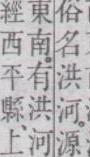 俗名洪河源
東南有洪河
經西平縣上